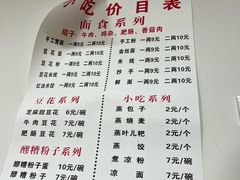 小吃价目表
面食系列
绍子：牛肉、鸡杂、肥肠、香菇肉
手工面 一两9元 二两10元
手工粉 一两9元 二两10元
豆花面 一两9元 二两10元
金丝面 一两9元 二两10元
豆花粉 一两9元 二两10元
米线 一两9元 二两10元
豆花米线 一两9元 二两10元
抄手 一两9元 二两10元
豆花抄手 一两9元 二两10元
鲜面 一两9元 二两10元
豆花系列
小吃系列
芝麻甜豆花 6元/碗
蒸包子 2元/个
牛肉豆花 7元/碗
蒸烧麦 2元/个
肥肠豆花 7元/碗
蒸叶儿粑 2元/个
蒸饺 2元/个
醪糟粉子系列
煮凉粉 7元/碗
醪糟粉子蛋 10元/碗
凉面 7元/碗